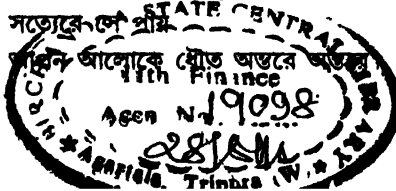 সত্যেরে সে পায়
আপন আলোকে ধৌত অন্তরে অন্তরে
STATE CENTRAL
11th Finance
Accn No. 19098
Agartala, Tripura (W)